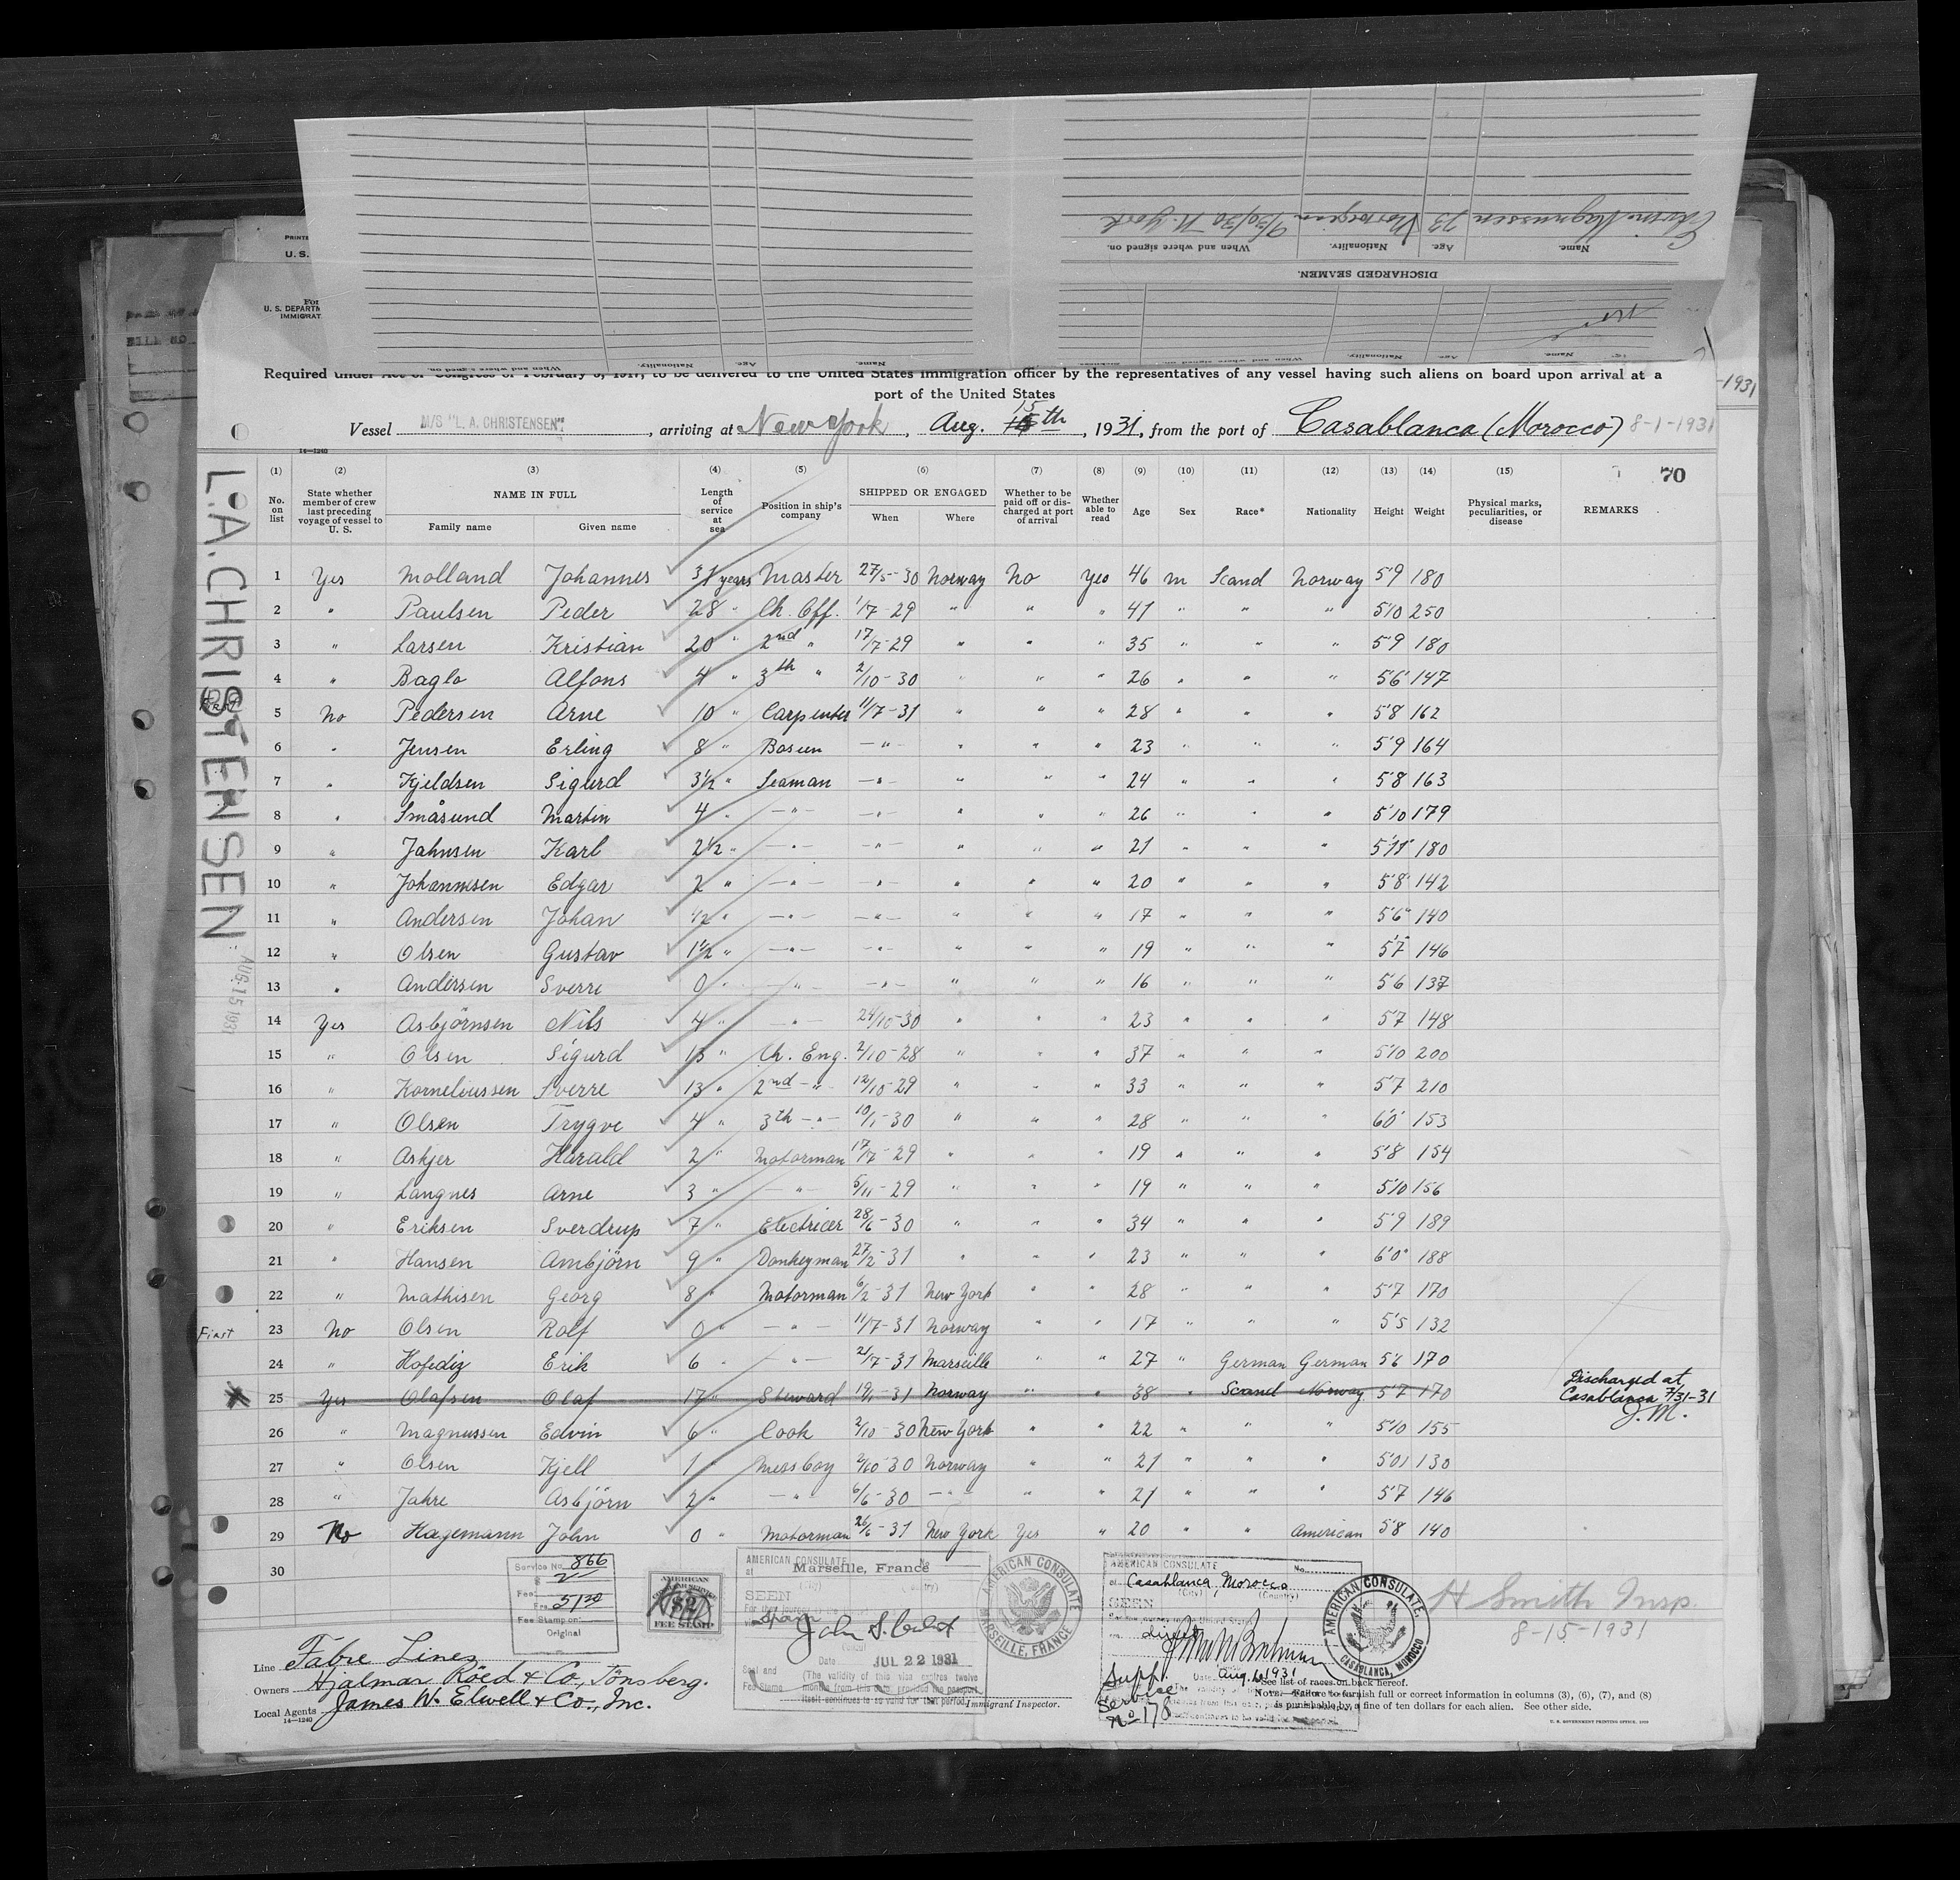 Edvin Magnussen 23 Norwegian 9/30/30 N. York
Name. Age. Nationality. When and where signed on.
DISCHARGED SEAMEN.
Name. Age. Nationality. When and where signed on. Name. Age. Nationality. When and where signed on.
PRINTE
U. S.
U. S. DEPARTM
IMMIGRAT
Required under Act of Congress of February 5, 1917, to be delivered to the United States immigration officer by the representatives of any vessel having such aliens on board upon arrival at a
port of the United States
-1931
Vessel M/S "L. A. CHRISTENSEN", arriving at New York, Aug. 15th, 1931, from the port of Casablanca (Morocco) 8-1-1931
14—1240
70
L.A. CHRISTENSEN
AUG 15 1931
(1) (2) (3) (4) (5) (6) (7) (8) (9) (10) (11) (12) (13) (14) (15)
No. on list State whether member of crew last preceding voyage of vessel to U. S. NAME IN FULL Family name Given name Length of service at sea Position in ship's company SHIPPED OR ENGAGED When Where Whether to be paid off or discharged at port of arrival Whether able to read Age Sex Race* Nationality Height Weight Physical marks, peculiarities, or disease REMARKS
1 Yes Molland Johannes 31 years Master 27/5-30 Norway No Yes 46 m Scand Norway 5'9 180
2 " Paulsen Peder 28 " Ch. Off. 1/7-29 " " " 41 " " " 5'10 250
3 " Larsen Kristian 20 " 2nd " 17/7-29 " " " 35 " " " 5'9 180
4 " Baglo Alfons 4 " 3th " 2/10-30 " " " 26 " " " 5'6" 147
First 5 No Pedersen Arne 10 " Carpenter 11/7-31 " " " 28 " " " 5'8 162
6 " Jensen Erling 8 " Bosun -"- " " " 23 " " " 5'9 164
7 " Kjeldsen Sigurd 3½ " Seaman -"- " " " 24 " " " 5'8 163
8 " Småsund Martin 4 " -"- -"- " " " 26 " " " 5'10 179
9 " Jahnsen Karl 2½ " -"- -"- " " " 21 " " " 5'11" 180
10 " Johannesen Edgar 2 " -"- -"- " " " 20 " " " 5'8" 142
11 " Andersen Johan ½ " -"- -"- " " " 17 " " " 5'6" 140
12 " Olsen Gustav 1½ " -"- -"- " " " 19 " " " 5'7" 146
13 " Andersen Sverre 0 " -"- -"- " " " 16 " " " 5'6 137
14 Yes Asbjörnsen Nils 4 " -"- 24/10-30 " " " 23 " " " 5'7 148
15 " Olsen Sigurd 13 " Ch. Eng. 2/10-28 " " " 37 " " " 5'10 200
16 " Korneliussen Sverre 13 " 2nd -"- 12/10-29 " " " 33 " " " 5'7 210
17 " Olsen Trygve 4 " 3th -"- 10/1-30 " " " 28 " " " 6'0" 153
18 " Askjer Harald 2 " Motorman 17/7-29 " " " 19 " " " 5'8 154
19 " Langnes Arne 3 " -"- 5/11-29 " " " 19 " " " 5'10 156
20 " Eriksen Sverdrup 7 " Electricer 28/6-30 " " " 34 " " " 5'9 189
21 " Hansen Arnbjörn 9 " Donkeyman 27/2-31 " " " 23 " " " 6'0" 188
22 " Mathisen Georg 8 " Motorman 6/2-31 New York " " 28 " " " 5'7 170
First 23 No Olsen Rolf 0 " -"- 11/7-31 Norway " " 17 " " " 5'5 132
24 " Hofediz Erik 6 " -"- 21/7-31 Marseille " " 27 " German German 5'6 170
25 Yes Olafsen Olaf 17 " Steward 19/1-31 Norway " " 38 " Scand Norway 5'7 170 Discharged at Casablanca 7/31-31 J.M.
26 " Magnussen Edvin 6 " Cook 2/10-30 New York " " 22 " " " 5'10 155
27 " Olsen Kjell 1 " Messboy 2/10-30 Norway " " 21 " " " 5'01 130
28 " Jahre Asbjörn 2 " -"- 6/6-30 -"- " " 21 " " " 5'7 146
29 No Hagemann John 0 " Motorman 26/6-31 New York Yes " 20 " " American 5'8 140
30
Service No. 866
$ 2
Fee:
Frs. 51.20
Fee Stamp on:
Original
AMERICAN
CONSULAR SERVICE
$2
FEE STAMP
AMERICAN CONSULATE No
at Marseille, France
(City) (Country)
SEEN
Spain
Consul
Date JUL 22 1931
Seal and
Fee Stamp
(The validity of this visa expires twelve
months from this date, provided the passport
itself continues to be valid for that period.)
AMERICAN CONSULATE MARSEILLE, FRANCE
AMERICAN CONSULATE No.
at Casablanca, Morocco
(City) (Country)
SEEN
direct
Date Aug. 1, 1931
Suppl.
Service
No 178
AMERICAN CONSULATE, CASABLANCA, MOROCCO
H Smith Insp.
8-15-1931
Line Fabre Line
Owners Hjalmar Röed & Co, Tönsberg.
Local Agents James W. Elwell & Co., Inc.
14—1240
Immigrant Inspector.
*See list of races on back hereof.
NOTE.—Failure to furnish full or correct information in columns (3), (6), (7), and (8)
is punishable by a fine of ten dollars for each alien. See other side.
U. S. GOVERNMENT PRINTING OFFICE: 1930